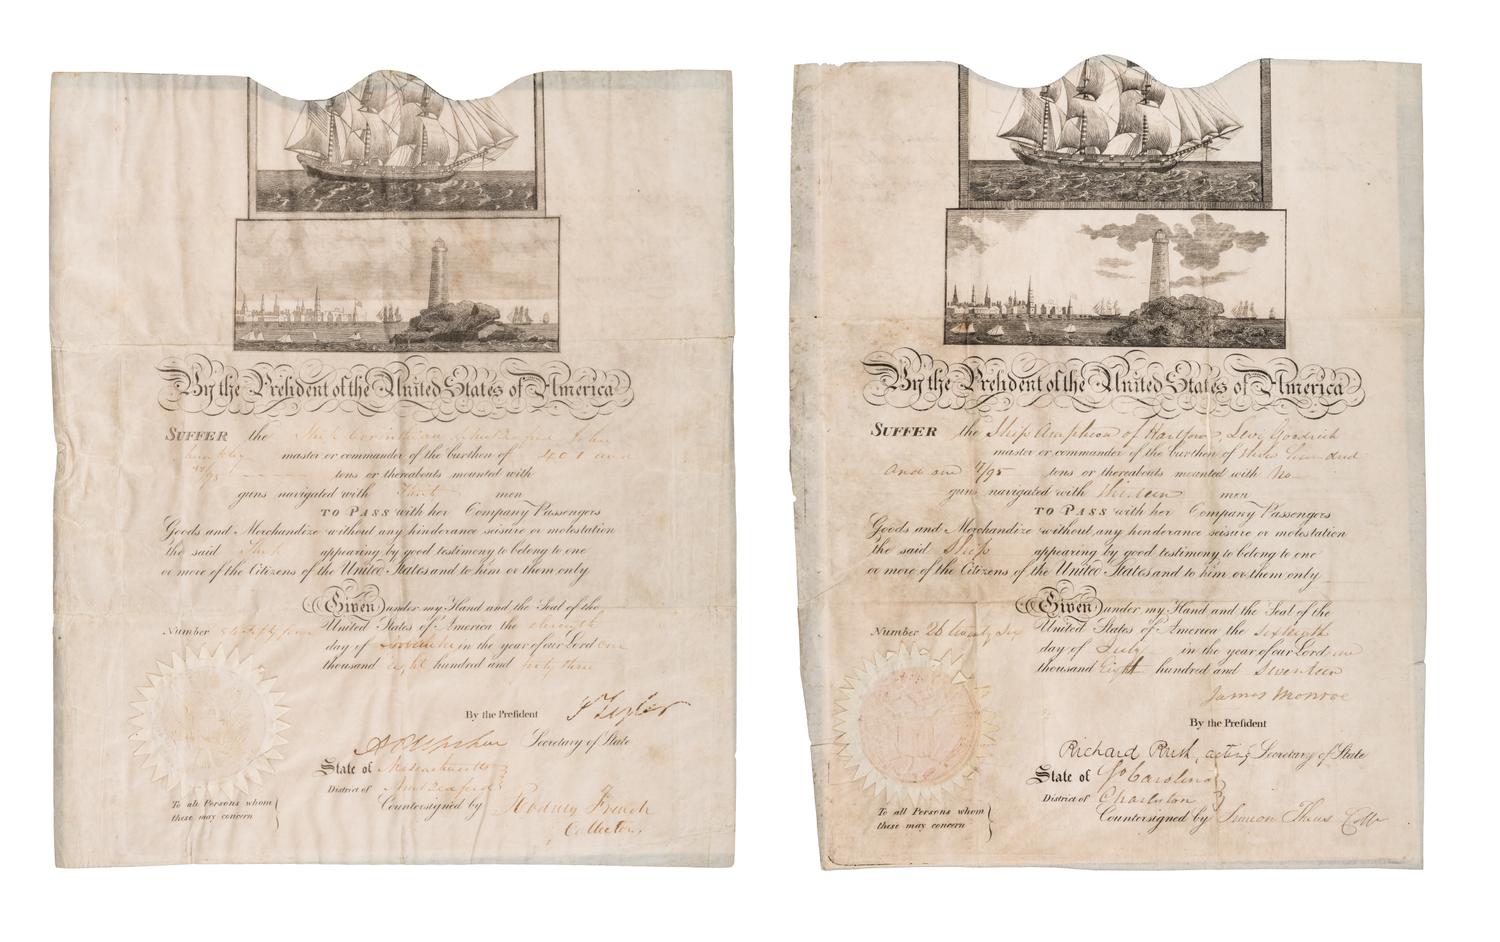 By the President of the United States of America
SUFFER the Ship Corinthian of New Bedford John
master or commander of the burthen of 401 and
/95 tons or thereabouts mounted with
guns navigated with men
TO PASS with her Company Passengers
Goods and Merchandize without any hinderance seisure or molestation
the said Ship appearing by good testimony to belong to one
or more of the Citizens of the United States and to him or them only
Given under my Hand and the Seal of the
Number United States of America the eleventh
day of in the year of our Lord one
thousand eight hundred and forty three
By the President J Tyler
A P Upshur Secretary of State
State of Massachusetts
District of New Bedford
To all Persons whom
these may concern
Countersigned by Rodney French
Collector.
By the President of the United States of America
SUFFER the Ship Amphion of Hartford, Levi Goodrich
master or commander of the burthen of three hundred
and one /95 tons or thereabouts mounted with No
guns navigated with thirteen men
TO PASS with her Company Passengers
Goods and Merchandize without any hinderance seisure or molestation
the said Ship appearing by good testimony to belong to one
or more of the Citizens of the United States and to him or them only
Given under my Hand and the Seal of the
Number 26 twenty six United States of America the
day of July in the year of our Lord one
thousand Eight hundred and Seventeen
James Monroe
By the President
Richard Rush, acting Secretary of State
State of So Carolina
District of Charleston
To all Persons whom
these may concern
Countersigned by Simeon Theus Collr